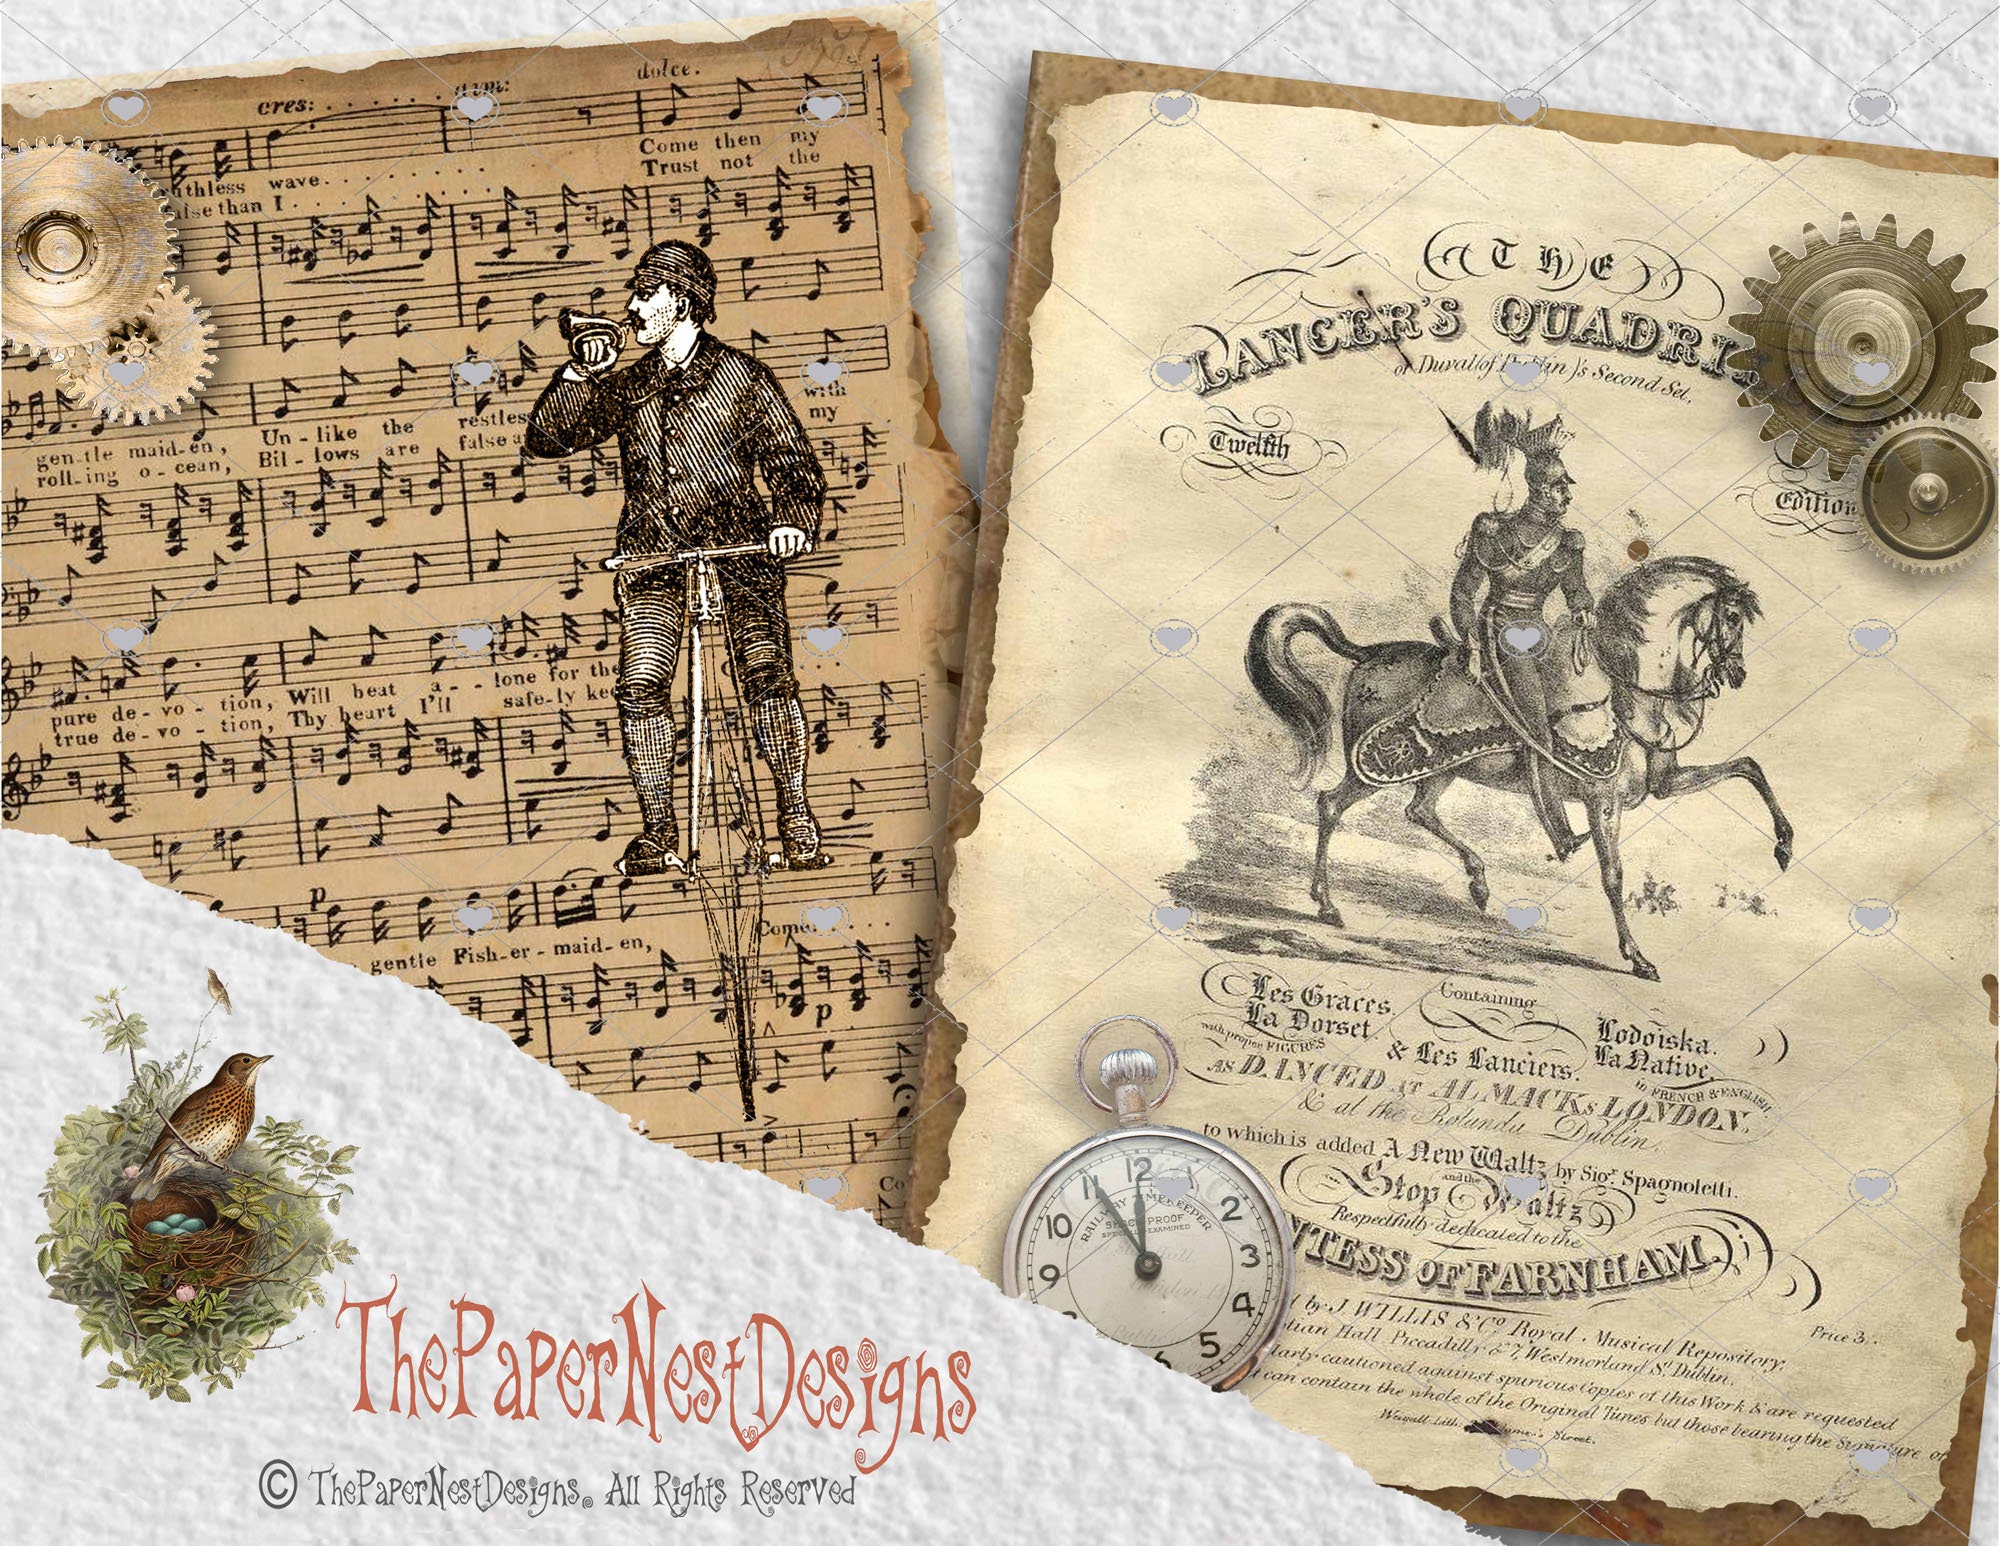 cres:
dolce.
Come then my
Trust not the
thless wave
aise than I
with
my
gen-tle maid-en, Un-like the restless
roll-ing o-cean, Bil-lows are false a
pure de-vo-tion, Will beat a--lone for the
true de-vo-tion, Thy heart I'll safe-ly kee
p
gentle Fish-er-maid-en,
Come
p
Co
THE
LANCER'S QUADRI
or Duval of Dublin)'s Second Set,
Twelfth
Edition
Containing
Les Graces.
La Dorset.
& Les Lanciers.
Lodoiska.
La Native.
with proper FIGURES
in FRENCH & ENGLISH
AS DANCED AT ALMACKs LONDON,
& at the Rotunda Dublin,
to which is added A New Waltz by Sigr. Spagnoletti.
and the
Stop Waltz
Respectfully dedicated to the
NTESS OF FARNHAM.
Price 3
d by J. WILLIS & Co Royal. Musical Repository,
tian Hall Piccadilly & 7, Westmorland St Dublin.
larly cautioned against spurious Copies of this Work & are requested
can contain the whole of the Original Tunes but those bearing the Signature of
Street.
12
11
10
9
2
3
4
5
6
RAILWAY TIMEKEEPER
SHOCKPROOF
EXAMINED
ThePaperNestDesigns
© ThePaperNestDesigns. All Rights Reserved